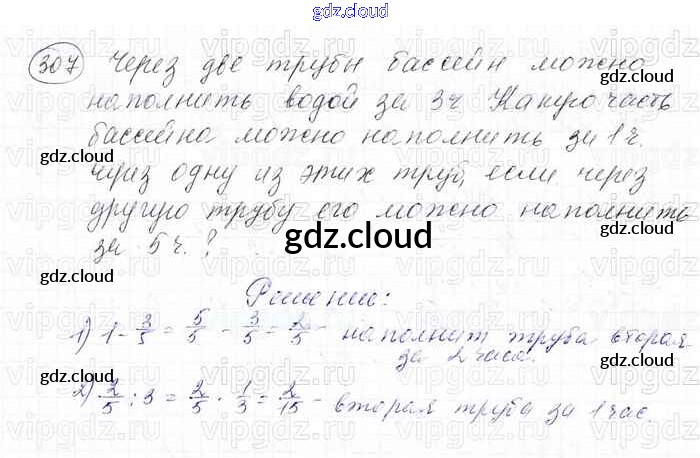 gdz.cloud
307 Через две трубы бассейн можно
наполнить водой за 3ч Какую часть
бассейна можно наполнить за 1 ч.
через одну из этих труб, если через
другую трубу его можно наполнить
за 5 ч.?
gdz.cloud
Решение:
1) 1 - 3/5 = 5/5 - 3/5 = 2/5 - наполнит труба вторая
за 2 часа.
2) 2/5 : 3 = 2/5 · 1/3 = 2/15 - вторая труба за 1 час.
gdz.cloud